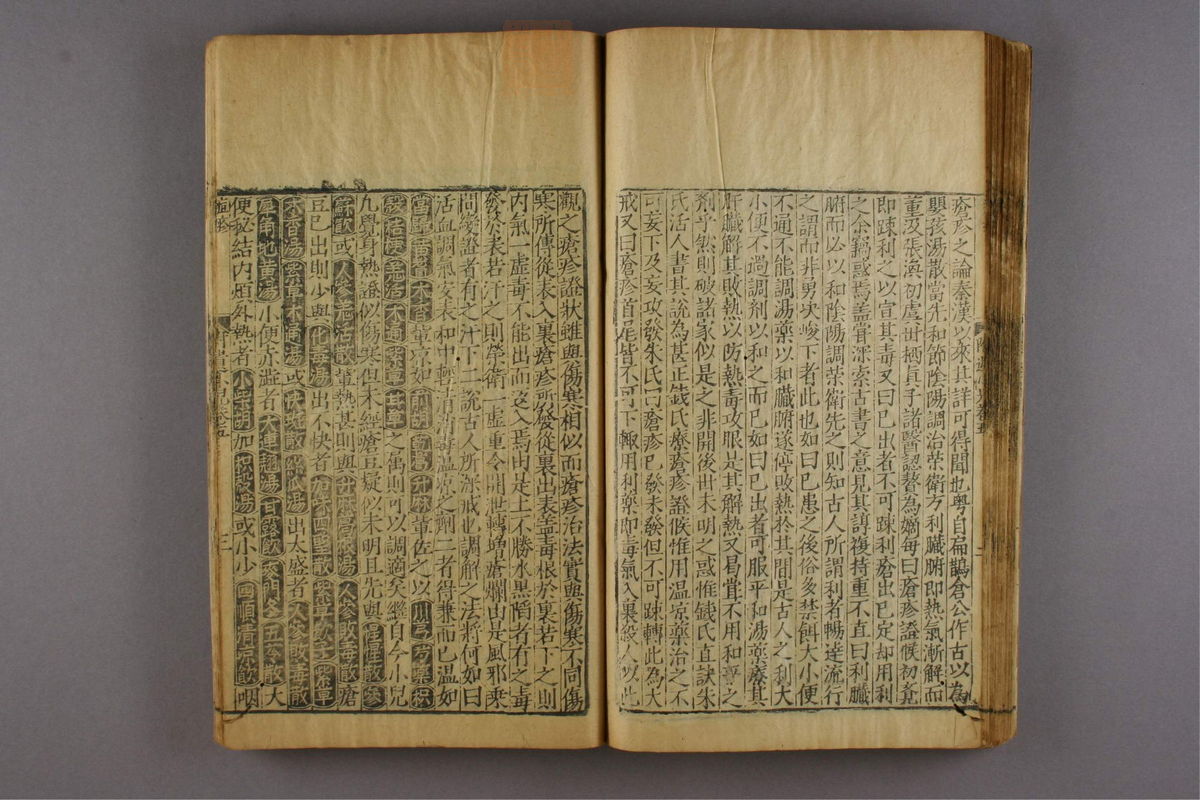 瘡疹之論秦漢以來其詳可得聞也粤自扁鵲倉公作古以為
嬰孩湯散當先和節陰陽調治榮衛方利臟腑即熱氣漸解而
董汲張渙初虞世栖真子諸醫認螯為螄每曰瘡疹證候初覺
即踈利之以宣其毒又曰已出者不可踈利瘡出已定却用利
之余竊惑焉盖嘗深索古書之意見其諄複持重不直曰利臟
腑而以和陰陽調榮衛先之則知古人所謂利者暢達流行
之謂而非勇决峻下者此也如曰已患之後俗多禁餌大小便
不通不能調湯藥以和臟腑遂停敗熱於其間是古人之利大
小便不過調劑以和之而已如曰已出者可服平和湯藥療其
肝臟解其敗熱以防熱毒攻眼是其解熱又昜甞不用和平之
劑乎然則破諸家似是之非開後世未明之惑惟錢氏直訣朱
氏活人書其說為甚正錢氏療瘡疹證候惟用温凉藥治之不
可妄下及妄攻發朱氏曰瘡疹已發未發但不可踈轉此為大
戒又曰瘡疹首尾皆不可下輙用利藥即毒氣入裏殺人以此
觀之瘡疹證狀雖與傷寒相似而瘡疹治法實與傷寒不同傷
寒所傳從表入裏瘡疹所發從裏出表盖毒根於裏若下之則
内氣一虛毒不能出而交入焉由是上不勝水黒陷者有之毒
發於表若汗之則榮衛一虛重令開泄轉增瘡爛由是風邪乘
間變證者有之汗下二說古人所深戒也調解之法將何如曰
活血調氣安表和中輕清消毒温凉之劑二者得兼而已温如
當歸黄耆木香輩凉如前胡葛升麻輩佐之以川芎芍藥枳
殻桔梗羗活木通紫草甘草之屬則可以調適矣繼自今小兒
凡覺身熱證似傷寒但未經瘡豆疑似未明且先與惺惺散參
蘇飲或人參羗活散輩熱甚則與升麻葛根湯人參敗毒散瘡
豆已出則少與化毒湯出不快者加味四聖散紫草飲子紫草
木香湯紫草木通湯或快斑散絲瓜湯出太盛者人參敗毒散
犀角地黄湯小便赤澁者大連翹湯甘露飲麥門冬五苓散大
便秘結内煩外熱者小柴胡加枳殻湯或小少四順清凉飲咽